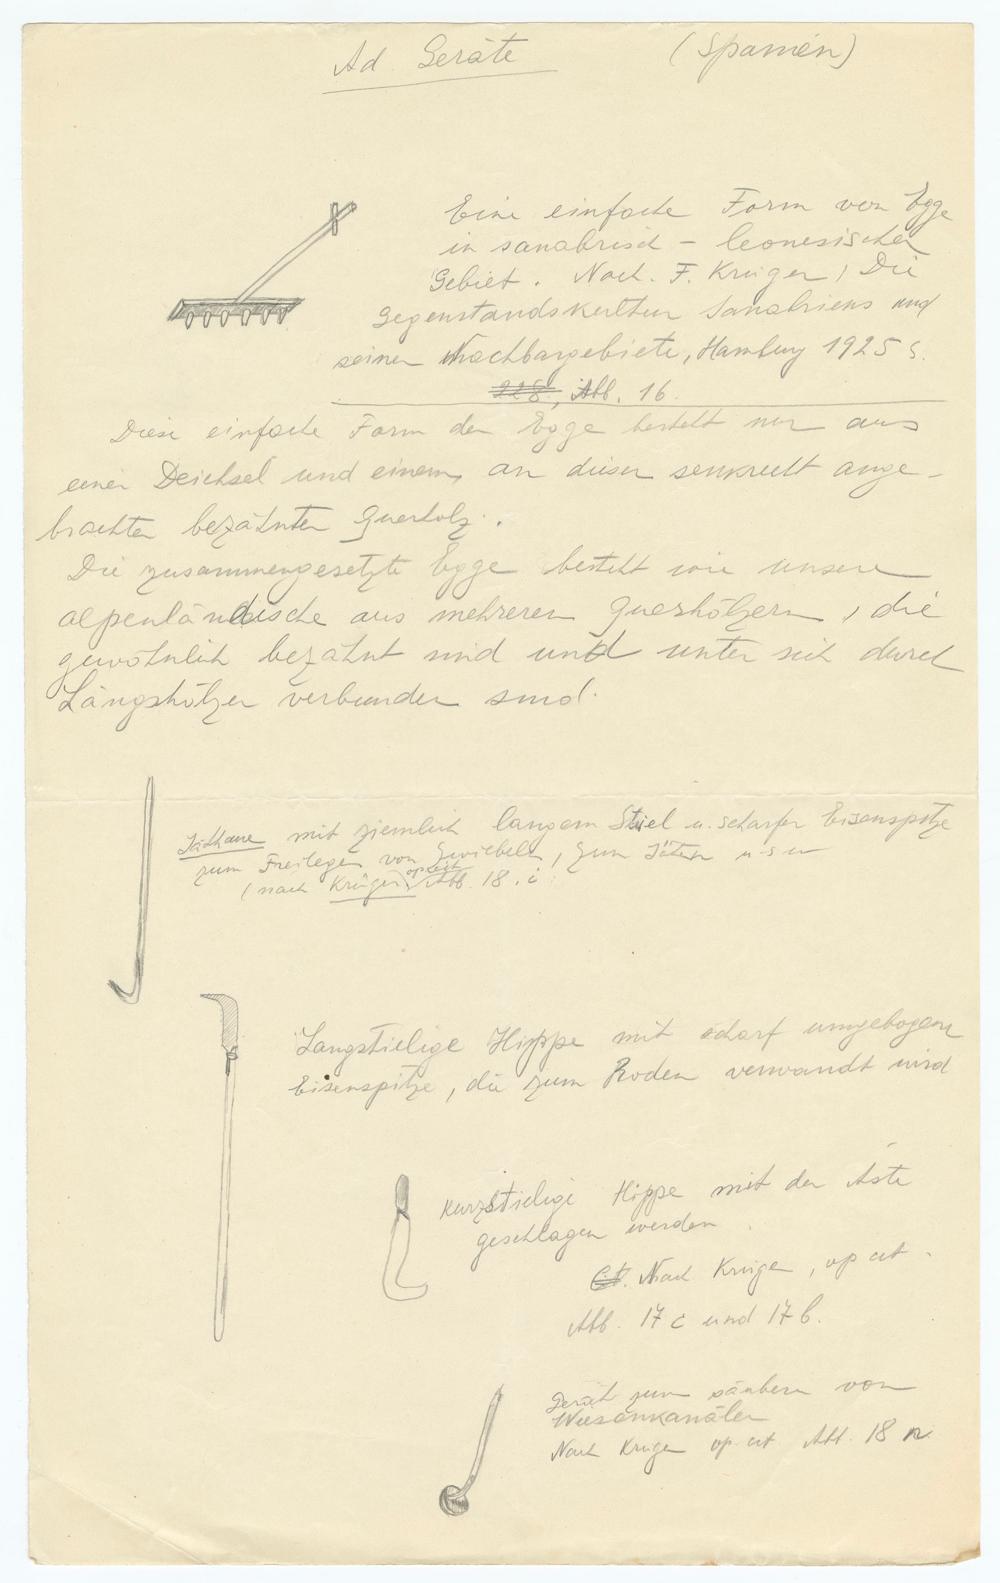 Ad Geräte (Spanien)
Eine einfache Form von Egge
in sanabrisch - leonesischer
Gebiet. Nach F. Krüger, Die
Gegenstandskultur Sanabriens und
seiner Nachbargebiete, Hamburg 1925 S.
228, Abb. 16.
Diese einfache Form der Egge besteht nur aus
einer Deichsel und einem, an dieser senkrecht ange-
brachten bezahnten Querholz.
Die zusammengesetzte Egge besteht wie unsere
alpenländische aus mehreren Querhölzern, die
gewöhnlich bezahnt sind und unter sich durch
Längshölzer verbunden sind.
Jäthaue mit ziemlich langem Stiel u. scharfer Eisenspitze
zum Freilegen von Zwiebeln, zum Jäten u s w
(nach Krüger op cit Abb. 18. i.
Langstielige Hippe mit scharf umgebogener
Eisenspitze, die zum Roden verwandt wird
Kurzstielige Hippe mit der Äste
geschlagen werden.
Cit. Nach Krüger, op cit.
Abb. 17 c und 17 b.
Gerät zum säubern von
Wiesenkanälen
Nach Krüger op. cit Abb. 18 n.